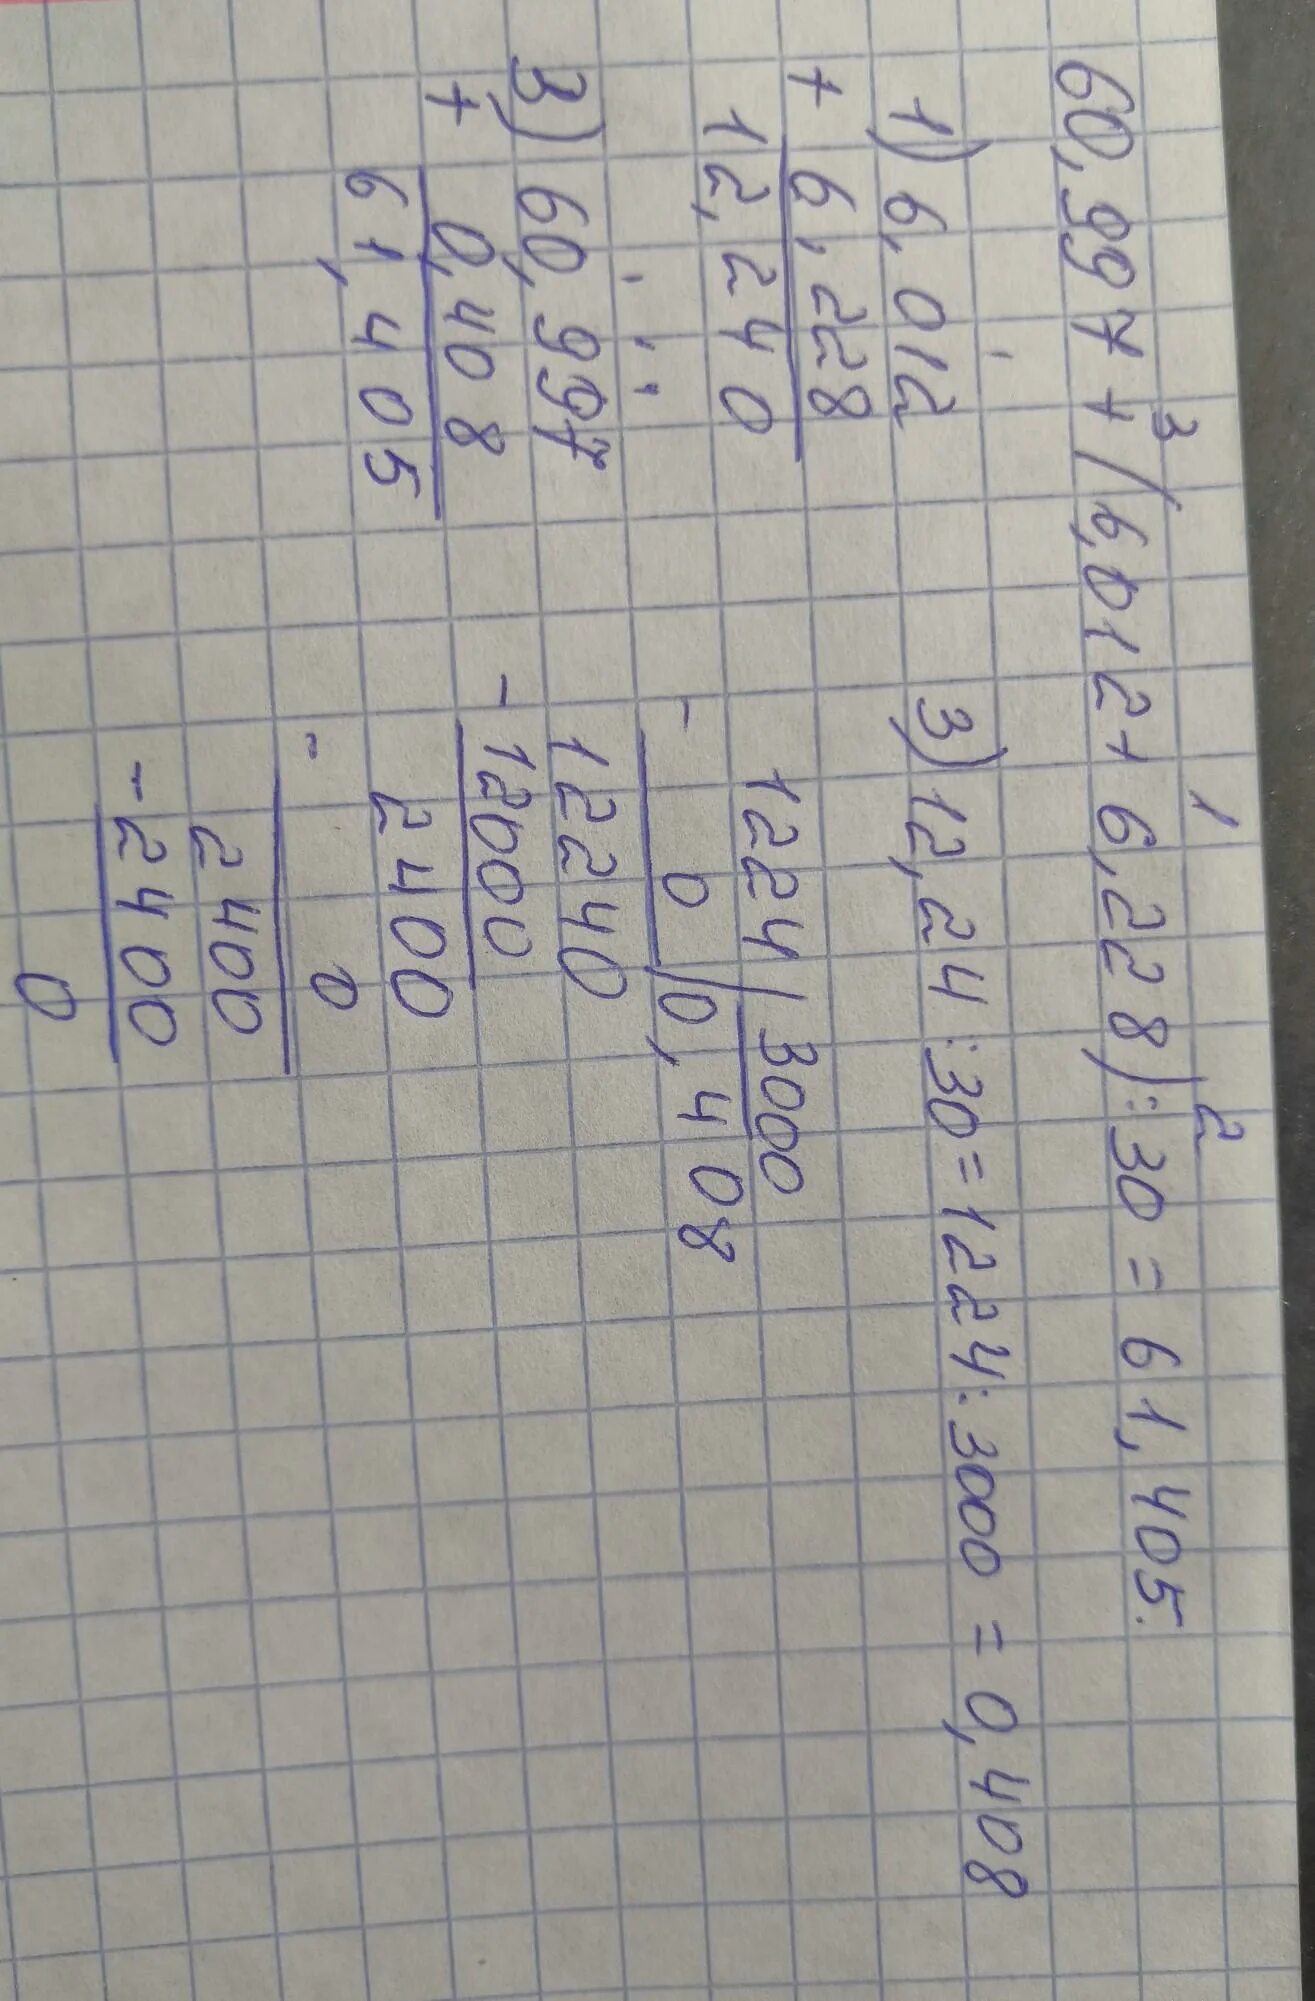 3 1 2
60,997+(6,012+6,228):30=61,405.
1) 6,012
+ 6,228
12,240
3) 12,24:30=1224:3000=0,408
1224 | 3000
- 0 | 0,408
12240
- 12000
2400
- 0
2400
- 2400
0
3) 60,997
+ 0,408
61,405